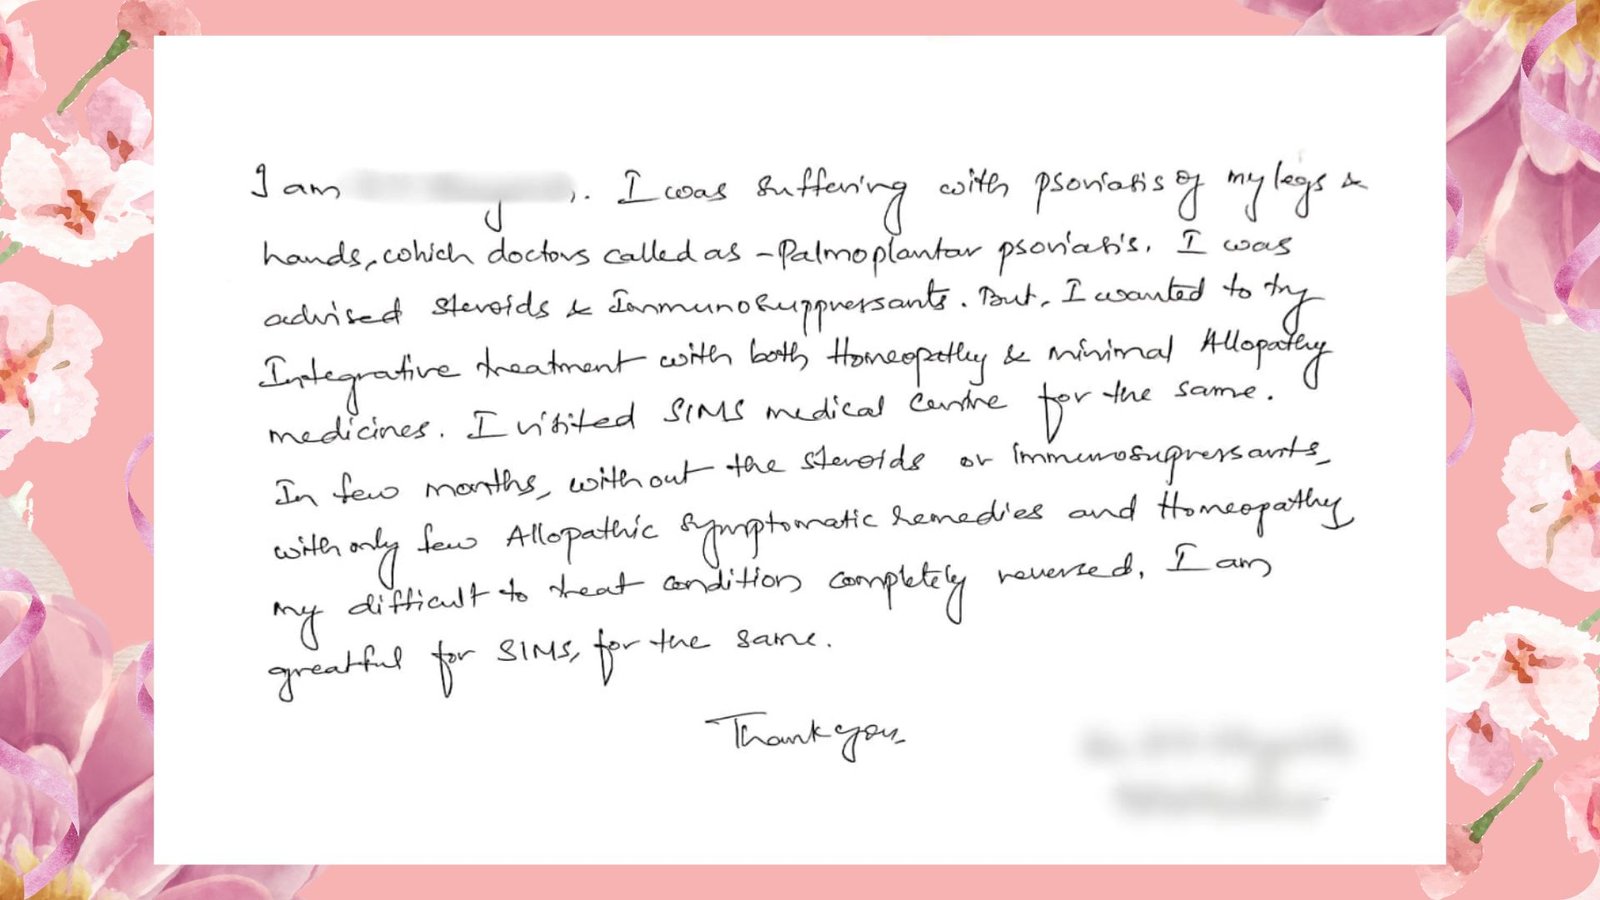 I am . I was suffering with psoriasis of my legs &
hands, which doctors called as - Palmoplantar psoriasis. I was
advised steroids & Immunosuppressants. But, I wanted to try
Integrative treatment with both Homeopathy & minimal Allopathy
medicines. I visited SIMS medical Centre for the same.
In few months, without the steroids or immunosupressants,
with only few Allopathic symptomatic remedies and Homeopathy
my difficult to treat condition completely reversed. I am
greatful for SIMS, for the same.
Thank you